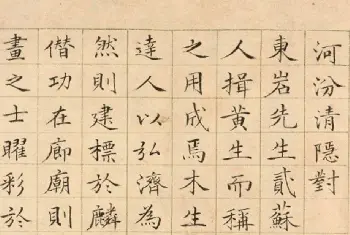 河汾清隱對
東岩先生貳蘇
人揖黃生而稱
之用成焉木生
達人以弘濟為
然則建標於麟
僣功在廊廟則
畫之士曜彩於